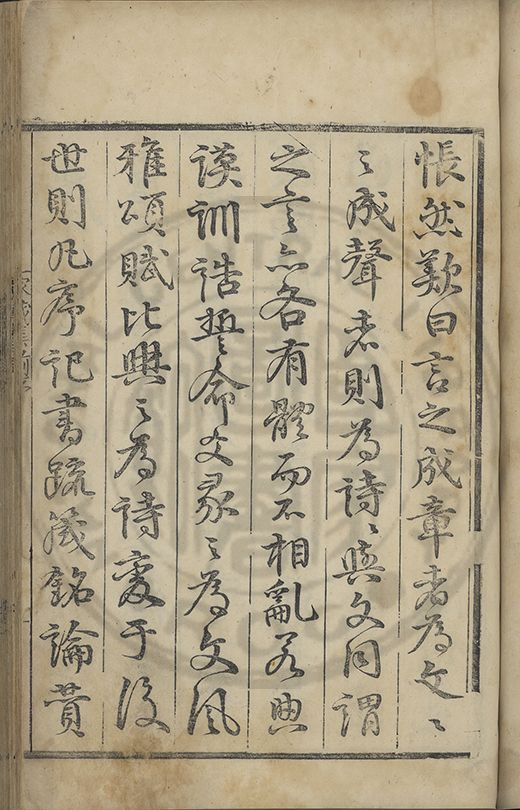 悵然歎曰言之成章者為文〻
〻成聲者則為詩〻與文同謂
之言亦各有體而不相亂若典
謨訓誥誓命爻彖〻為文風
雅頌賦比興〻為詩變于後
世則凡序記書疏箴銘論贊